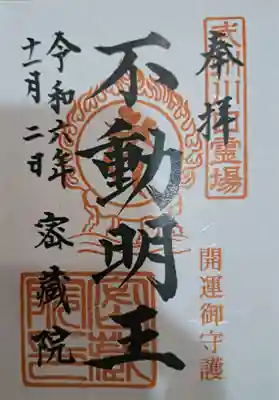 奉拝
開運御守護
不動明王
令和六年
十一月二日
密蔵院